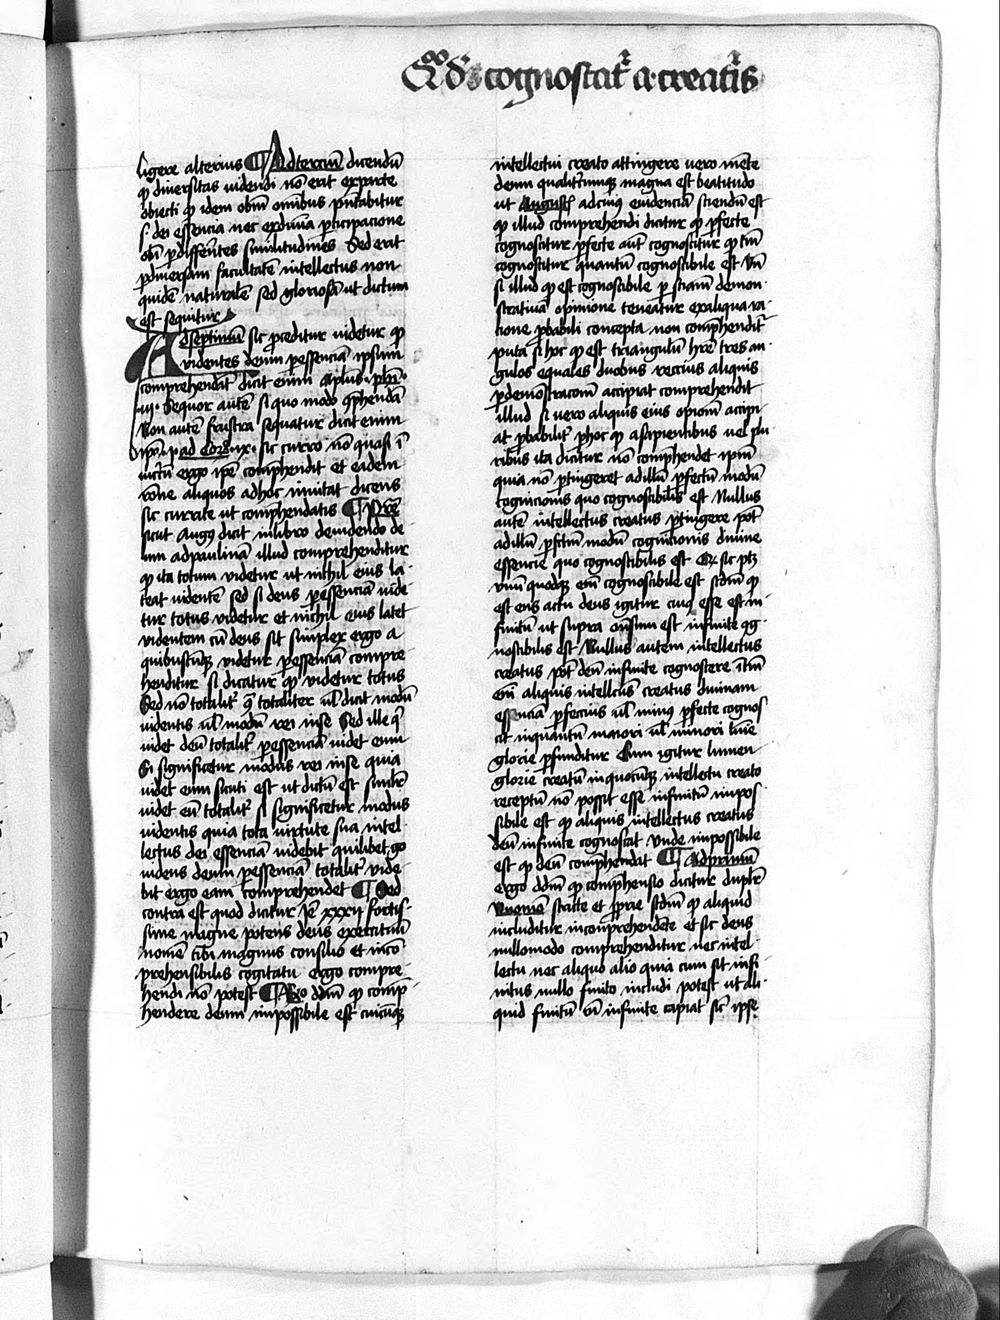 Qō dꝰ cognoscat᷑ a creat᷑is
ligere alterius ¶ Ad terciū dicendū
ꝙ diuersitas uidendi nō erit ex parte
obiecti ꝙ idem obm̄ omibus p̄ntabitur
s. dei essencia nec ex diuīa ꝑticipacione
obi ꝑ differētes similitudines Sed erit
ꝑ diuersam facultatē intellectus non
quidē naturalē sed gloriosā ut dictum
est sequitur
Ad septimū sic ꝓceditur uidetur ꝙ
videntes deum ꝑ essenciā ipsum
comprehendāt dicit enim apl̄us phil̄.
iii. Sequor autē si quo modo cōphendā
Non autē frustra sequatur dicit enim
ip̄e p̄ ad Cor. ix. sic curro nō quasi ī
incertū ergo ip̄e comphendit et eadem
rōne aliquos ad hoc inuitat dicens
sic currite ut comphendatis ¶ Pret̄
sicut Augꝰ dicit in libro de uidendo de
um ad paulinā illud comprehenditur
ꝙ ita totum videtur ut nichil eius la
teat uidentē sed si deus ꝑ essenciā uide
tur totus uidetur et nichil eius latet
videntem cū deus sit simplex ergo a
quibuscūqꝫ videtur ꝑ essenciā compre
henditur si dicatur ꝙ videtur totus
Sed nō totalit᷑ ꝯ̄ totaliter ul̄ dicit modū
videntis ul̄ modū rei uise Sed ille q̄
uidet deū totalit᷑ ꝑ essenciā uidet eum
Si significetur modus rei uise quia
uidet eum sicuti est ut dictū est similit̄
uidet eū totalit᷑ si significetur modus
uidentis quia tota uirtute sua intel
lectus dei essenciā uidebit quilibet go
uidens deum ꝑ essenciā totalit᷑ vide
bit ergo eam comprehendet ¶ Sed
contra est quod dicitur Ie᷑ xxxii fortis
sime magne potens deus exercituū
nomē tibi magnus consilio et inco᷑
prehensibilis cogitatu ergo compre
hendi nō potest ¶ Rn̄o ddm̄ ꝙ comp
hendere deum impossibile est cuicūqꝫ
intellectui creato attingere uero mēte
deum qualit᷑cumqꝫ magna est beatitudo
ut Augustꝰ ad cuiꝰ euidenciā sciendū est
ꝙ illud comprehendi dicitur ꝙ ꝑfecte
cognoscitur ꝑfecte aut̄ cognoscitur ꝙ tm̄
cognoscitur quantū cognoscibile est Vn̄
si illud ꝙ est cognoscibile ꝑ sciam̄ demon
stratiuā opinione teneatur ex aliqua ra
cione ꝓbabili concepta non comphendit᷑
puta si hoc ꝙ est triangulū hr̄e tres an
gulos equales duobus rectis aliquis
ꝑ demōstraconē accipiat comprehendit
illud si uero aliquis eius opionē accipi
at ꝓbabilit᷑ ꝑ hoc ꝙ a sapientibus uel plu
ribus ita dicitur nō comphendet ipm̄
quia nō ꝑtingeret ad illū ꝑfectū modū
cognicionis quo cognoscibilis est Nullus
autē intellectus creatus ꝑtingere pot̄
ad illū ꝑfctm̄ modū cognicionis diuine
essencie quo cognoscibilis est Qd̄ sic ptꝫ
vnū quodqꝫ em̄ cognoscibile est scdm̄ ꝙ
est ens actu deus igitur cuiꝰ esse est in
finitū ut supra oñsum est infinite cog
noscibilis est Nullus autem intellectus
creatus pot̄ deū infinite cognoscere ītm̄
em̄ aliquis intellectus creatus diuinam
essenciā ꝑfeccius ul̄ minꝰ ꝑfecte cognos
cit inquantū maiori ul̄ minori lum̄e
glorie ꝑfunditur Cum igitur lumen
glorie creatū in quocūqꝫ intellectu creato
receptū nō possit esse infinitū impos
sibile est ꝙ aliquis intellectus creatus
deū infinite cognoscat Vnde impossibile
est ꝙ deū comphendat ¶ Ad primū
ergo ddm̄ ꝙ comphensio dicitur duplr̄
vnomō stricte et ꝓprie scdm̄ ꝙ aliquid
includitur in comprehendēte et sic deus
nullomodo comprehenditur nec intel
lectu nec aliquo alio quia cum sit infi
nitus nullo finito includi potest ut ali
quid finitū eū infinite capiat sic᷑ ipse